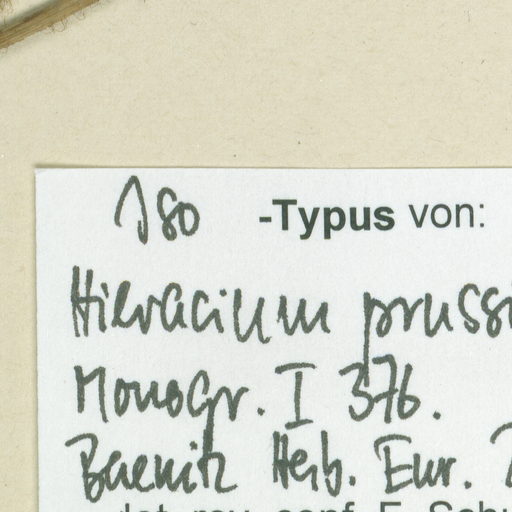 Iso -Typus von:
Hieracium prussi
Monogr. I 376.
Baenitz Herb. Eur.
det. rev. conf. E. Schu